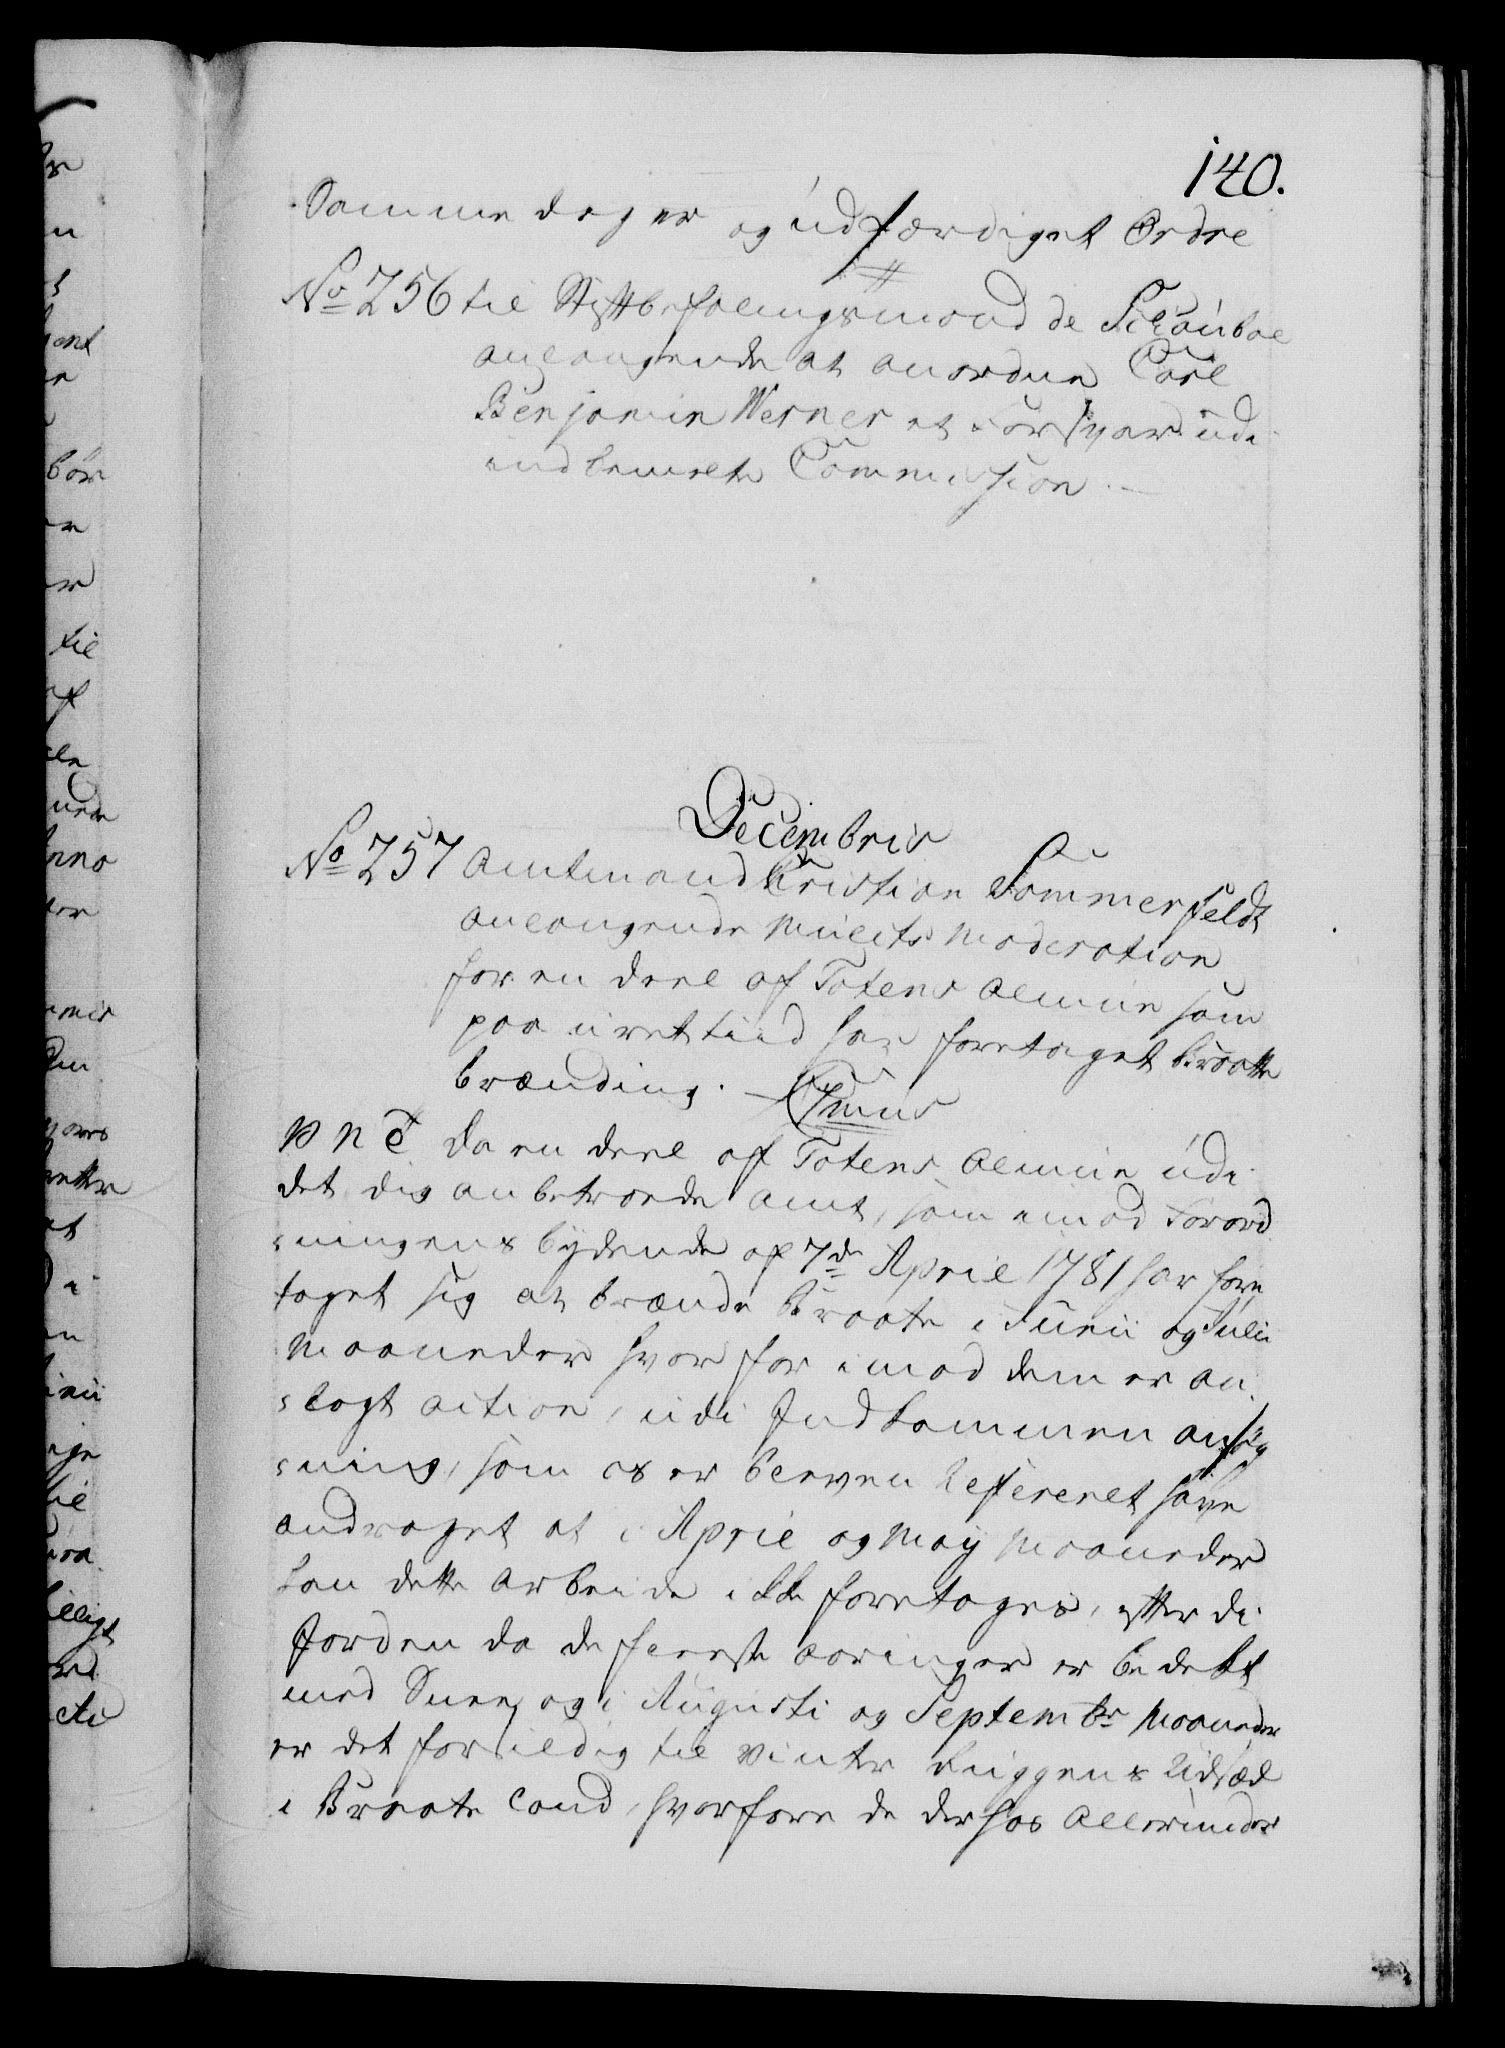 140.
Samme dag er og udfærdiget Ordre
No 256 til Stiftbefalingsmand de Schouboe
anlangende at anordne Carl
Benjamin Werner et Forsvar udi
indbemelte Commission.
Decembris
No 257 Amtmand Christian Sommerfeldt
anlangende Mulcts Moderation
for en deel af Totens Almue som
paa uret tiid har foretaget Braatte
brænding.
Da en deel af Totens Almue udi
det dig anbetroede Amt, som imod Forord
ningens bydende af 7de April 1781 har fore
taget sig at brænde Braate i Junii og Julii
Maaneder hvor for imod dem er an
lagt action, udi Indkommen ansøg
ning, som os er bleven Refereret have
andraget at i April og May Maaneder
kan dette Arbeide ikke foretages, efterdi
Jorden da de fleeste Aaringer er bedekt
med Snee, og i Augusti og Septembr Maaneder
er det for sildig til Vinter Ruggens Udsæd
i Braate Land, hvorfore de derhos Allerunder